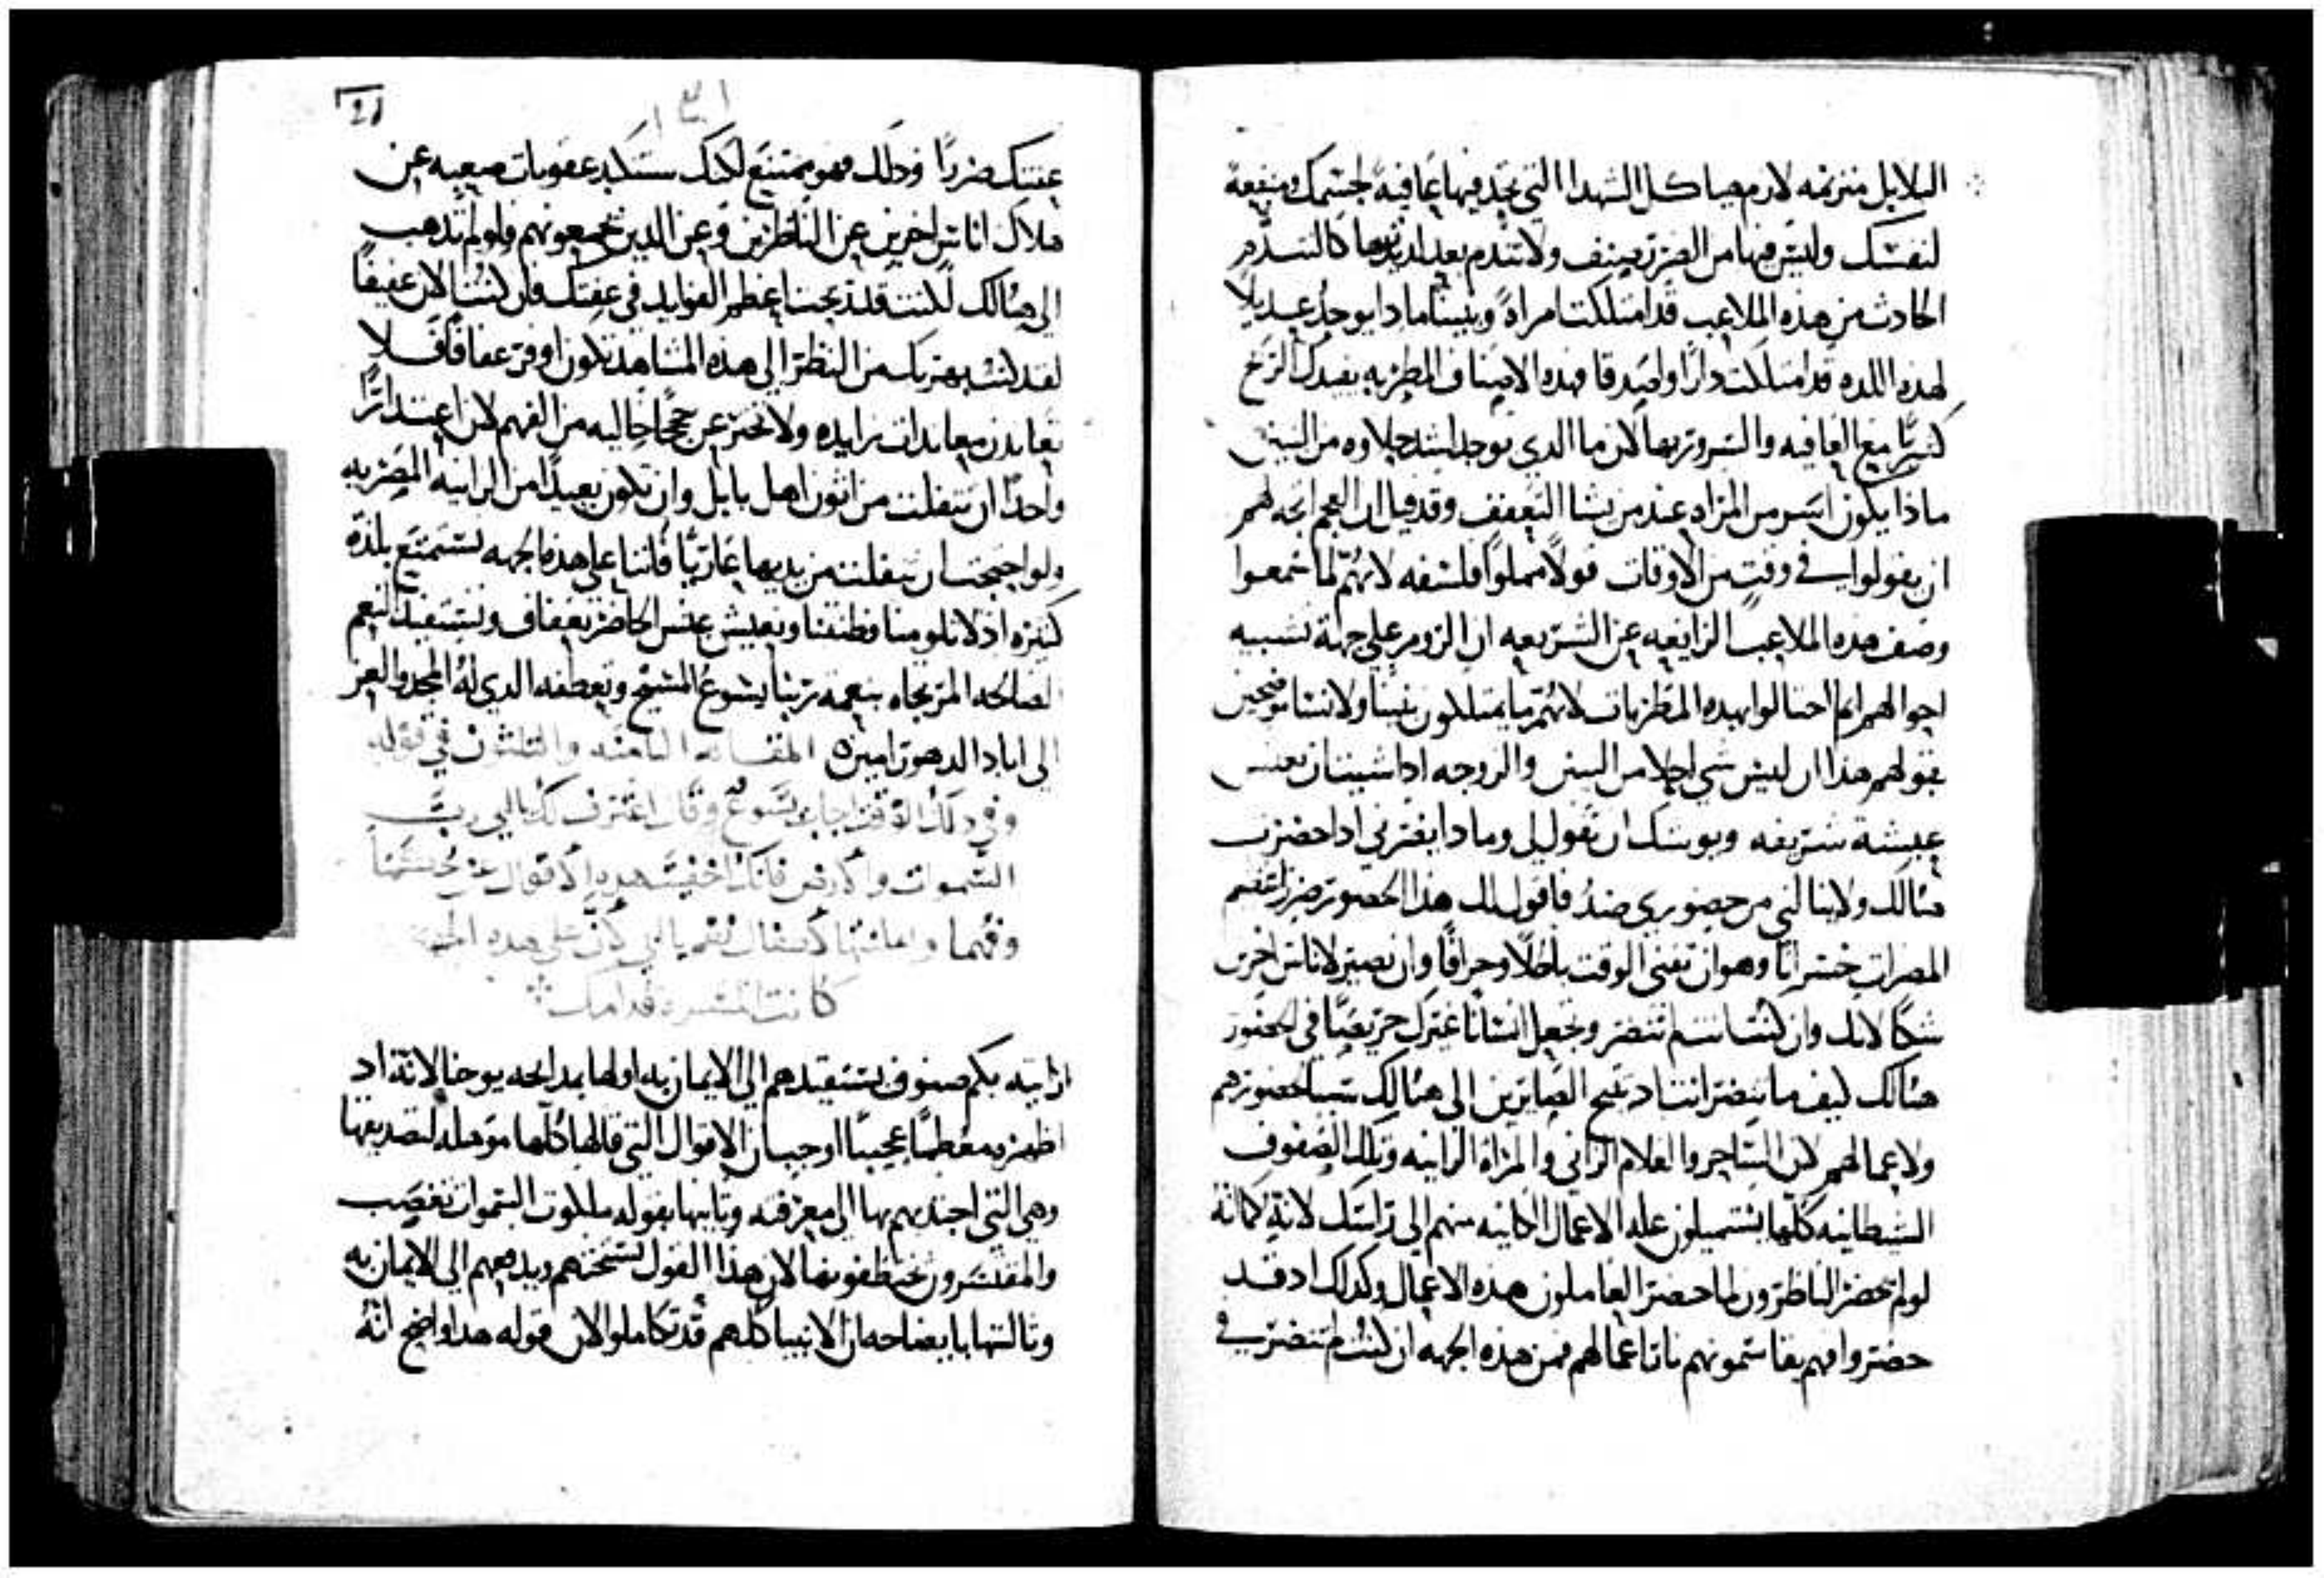 البلابل مترنمه لازم هياكل الشهدا التي تجد فيها عافيةً لجسمك ومنفعة
لنفسك وليس فيها من الضرر صنف ولا تتندم بعد لذتها كالتندم
الحادث من هذه الملاعب قد امتلكت امراةً وبنينًا ماذا يوجد عديلاً
لهذه اللذه قد امتلكت دارًا واصدقا فهذه الاصناف المطربه تفيدك الربح
كثيرًا مع العافيه والسرور بها لان ما الذي يوجد اشد حلاوه من البنين
ماذا يكون اسر من المراه عند من يشا التعفف وقد قيل ان العجم اتجه لهم
ان يقولوا في وقتٍ من الاوقات قولاً مملوًا فلسفه لانهم لما سمعوا
وصف هذه الملاعب الزايغه عن الشريعه ان الروم على جهة تشبيه
احوالهم انما احتالوا بهذه المطربات لانهم ما يمتلكون بنينًا ولا نسا موضحين
بقولهم هذا ان ليس شي احلا من البنين والزوجه اذا شينا ان نعيش
عيشة شريفه ويوشك ان تقول لي وماذا يضرني اذا حضرت
هنالك ولا ينالني من حضوري ضدُ فاقول لك هذا الحضور ضرر اعظم
المضرات خسرانًا وهو ان تفنى الوقت باطلاً وجزافًا وان تصير لاناس اخرين
شكًا لانك وان كنت انت لم تنضر وتجعل انسانًا غيرك حريصًا في الحضور
هنالك كيف ما تنضر انت اذ تمنح الصايرين الى هنالك سببًا لحضورهم
ولاعمالهم لان الساحر والغلام الزاني والمراة الزانيه وتلك الصفوف
الشيطانيه كلها يشتميلون علة الاعمال الكاينه منهم الى راسك لانة كما انة
لو لم تحضر الناظرون لما حضر العاملون هذه الاعمال وكذلك اذ قد
حضروا فهم يقاسمونهم نار اعمالهم فمن هذه الجهه ان كنت لم تنضر في
21
عفتك ضررًا وذلك فهو ممتنع لكنك ستكابد عقوبات صعبه عن
هلاك اناس اخرين عن الناظرين وعن الذين تجمعونهم ولو لم تذهب
الى هنالك لكنت قد ربحت اعظم الفوايد في عفتك فان كنت الان عفيفًا
لقد كنت بهربك من النظر الى هذه المشاهد تكون اوفر عفافًا فلا
تعاندن معاندات زايده ولا تخترعن حججًا خاليه من الفهم لان اعتذارًا
واحدًا ان تنفلت من اتون اهل بابل وان تكون بعيدًا من الزانيه المصريه
ولو احتجت ان تنفلت من يديها عاريًا فاننا على هذه الجهه نستمتع بلذة
كثيره اذ لا تلومنا فطنتنا ونعيش عيش الحاضر بعفاف ونستفيد النعم
الصالحه المرتجاه بنعمة ربنا يشوع المسيح وتعطفه الذي له المجد والعز
الى اباد الدهور امين المقاله الثامنه والثلثون في قوله
وفي ذلك الوقت اجاب يسوع وقال اعترف لك يا ابي رب
السموات والارض فانك اخفيت هذه الاقوال عن حكما
وفهما واعلنتها لاطفال نعم يا ابي لان على هذه الجهه
كانت المسره قدامك
ارايته بكم صنوف يستقيدهم الى الايمان به اولها بمدايحه يوحنا لانة اذ
اظهره معظمًا عجيبًا اوجب ان الاقوال التي قالها كلها موهله لتصديقها
وهي التي اجتذبهم بها الى معرفته وثانيها بقوله ملكوت السموات تغصب
والمقتسرون يختطفونها لان هذا القول يستحثهم ويدفعهم الى الايمان به
وثالثها بايضاحه ان الانبيا كلهم قد تكاملوا لان قوله هذا اوضح انة